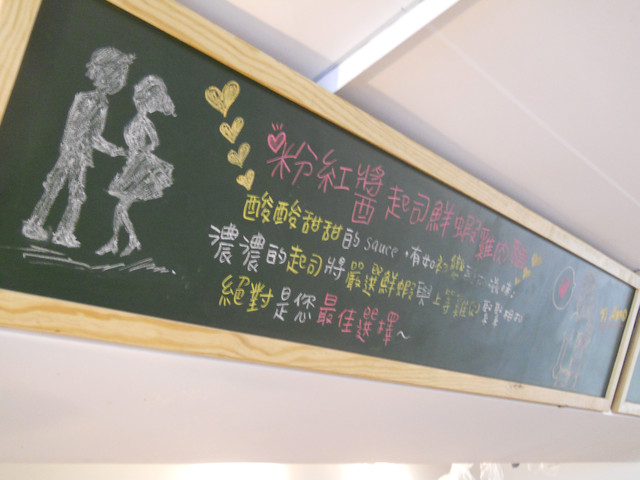 粉紅醬起司鮮蝦雞肉麵
酸酸甜甜的sauce,有如初戀的
濃濃的起司將嚴選鮮蝦與上等雞肉緊緊相扣
絕對是您最佳選擇~